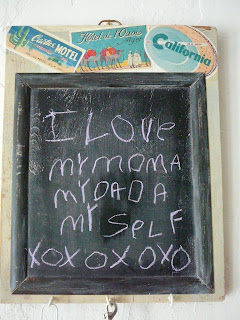 Cactus MOTEL
Hotel de l'Oasis
California
I LOVe
my moma
my DADA
my SeLF
XOXOXOXO